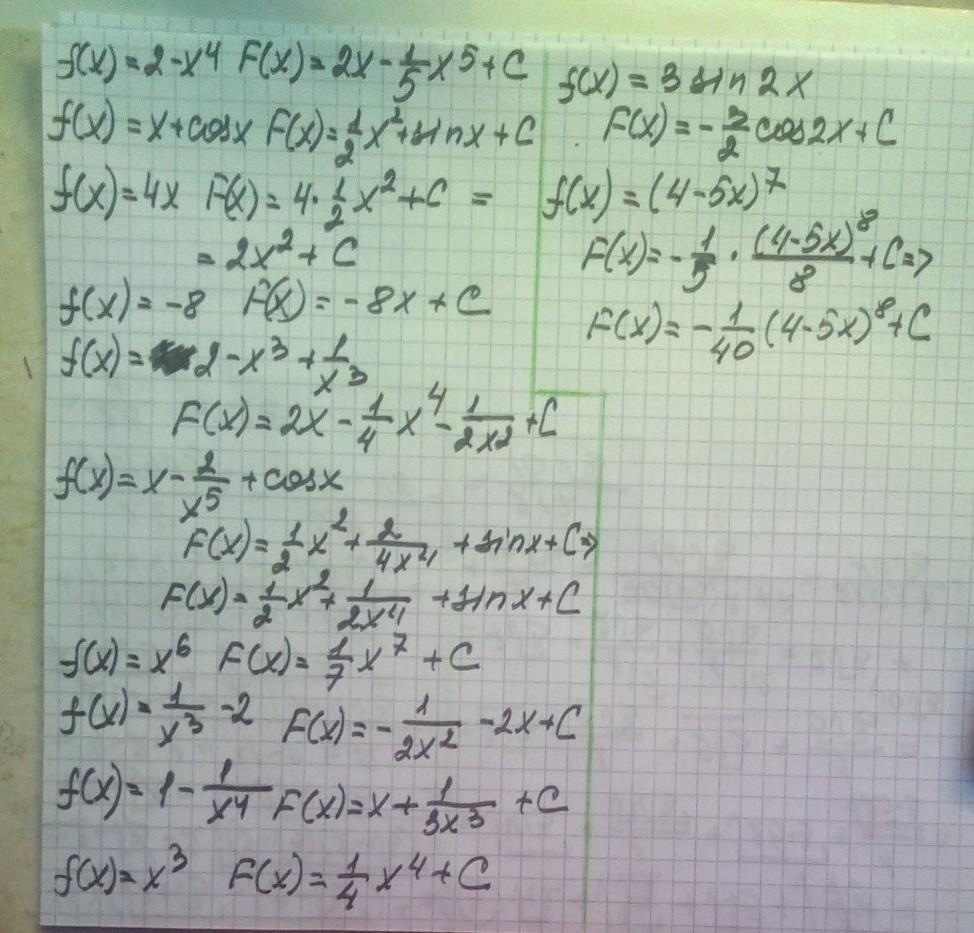 f(x) = 2 - x⁴ F(x) = 2x - 1/5 x⁵ + C
f(x) = x + cosx F(x) = 1/2 x² + sinx + C
f(x) = 4x F(x) = 4 · 1/2 x² + C =
= 2x² + C
f(x) = -8 F(x) = -8x + C
f(x) = 2 - x³ + 1/x³
F(x) = 2x - 1/4 x⁴ - 1/2x² + C
f(x) = x - 2/x⁵ + cosx
F(x) = 1/2 x² + 2/4x⁴ + sinx + C ⇒
F(x) = 1/2 x² + 1/2x⁴ + sinx + C
f(x) = x⁶ F(x) = 1/7 x⁷ + C
f(x) = 1/x³ - 2 F(x) = - 1/2x² - 2x + C
f(x) = 1 - 1/x⁴ F(x) = x + 1/3x³ + C
f(x) = x³ F(x) = 1/4 x⁴ + C
f(x) = 3 sin 2x
F(x) = - 3/2 cos2x + C
f(x) = (4-5x)⁷
F(x) = - 1/5 · (4-5x)⁸/8 + C ⇒
F(x) = - 1/40 (4-5x)⁸ + C